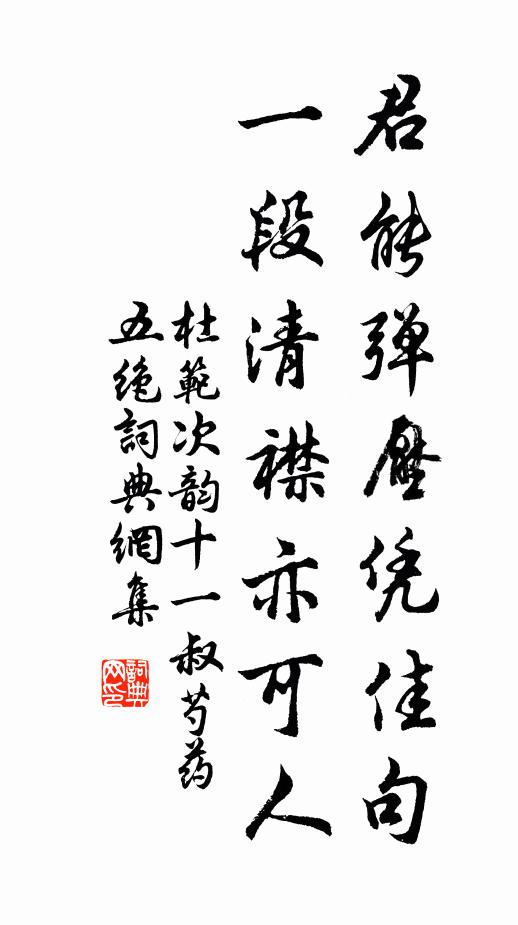 君能弹壓凭佳句
一段清襟亦可人
杜範次韵十一叔芍药
五绝詞典網集
詞典网印